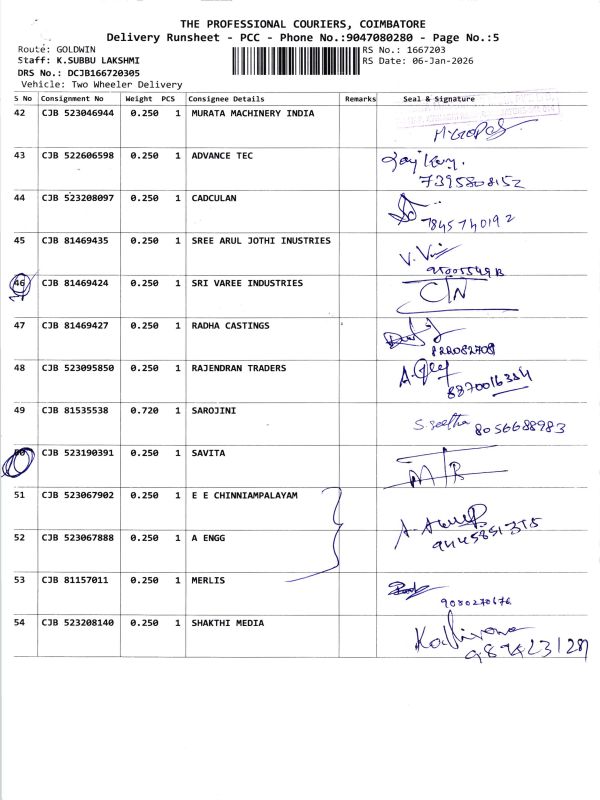 THE PROFESSIONAL COURIERS, COIMBATORE
Delivery Runsheet - PCC - Phone No.:9047080280 - Page No.:5
Route: GOLDWIN
RS No.: 1667203
Staff: K.SUBBU LAKSHMI
RS Date: 06-Jan-2026
DRS No.: DCJB166720305
Vehicle: Two Wheeler Delivery
S No Consignment No Weight PCS Consignee Details Remarks Seal & Signature
42 CJB 523046944 0.250 1 MURATA MACHINERY INDIA
43 CJB 522606598 0.250 1 ADVANCE TEC
7395808152
44 CJB 523208097 0.250 1 CADCULAN
7845740192
45 CJB 81469435 0.250 1 SREE ARUL JOTHI INUSTRIES
46 CJB 81469424 0.250 1 SRI VAREE INDUSTRIES
C/N
47 CJB 81469427 0.250 1 RADHA CASTINGS
48 CJB 523095850 0.250 1 RAJENDRAN TRADERS
8870016334
49 CJB 81535538 0.720 1 SAROJINI
S. Seetha 8056688983
50 CJB 523190391 0.250 1 SAVITA
51 CJB 523067902 0.250 1 E E CHINNIAMPALAYAM
52 CJB 523067888 0.250 1 A ENGG
53 CJB 81157011 0.250 1 MERLIS
9080270676
54 CJB 523208140 0.250 1 SHAKTHI MEDIA